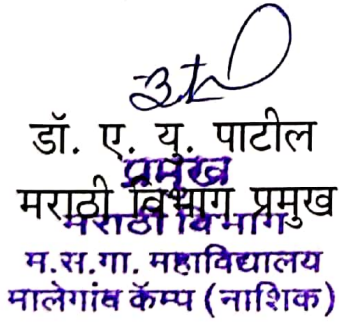 डॉ. ए. यु. पाटील
प्रमुख
मराठी विभाग प्रमुख
मराठी विभाग
म.स.गा. महाविद्यालय
मालेगांव कॅम्प (नाशिक)